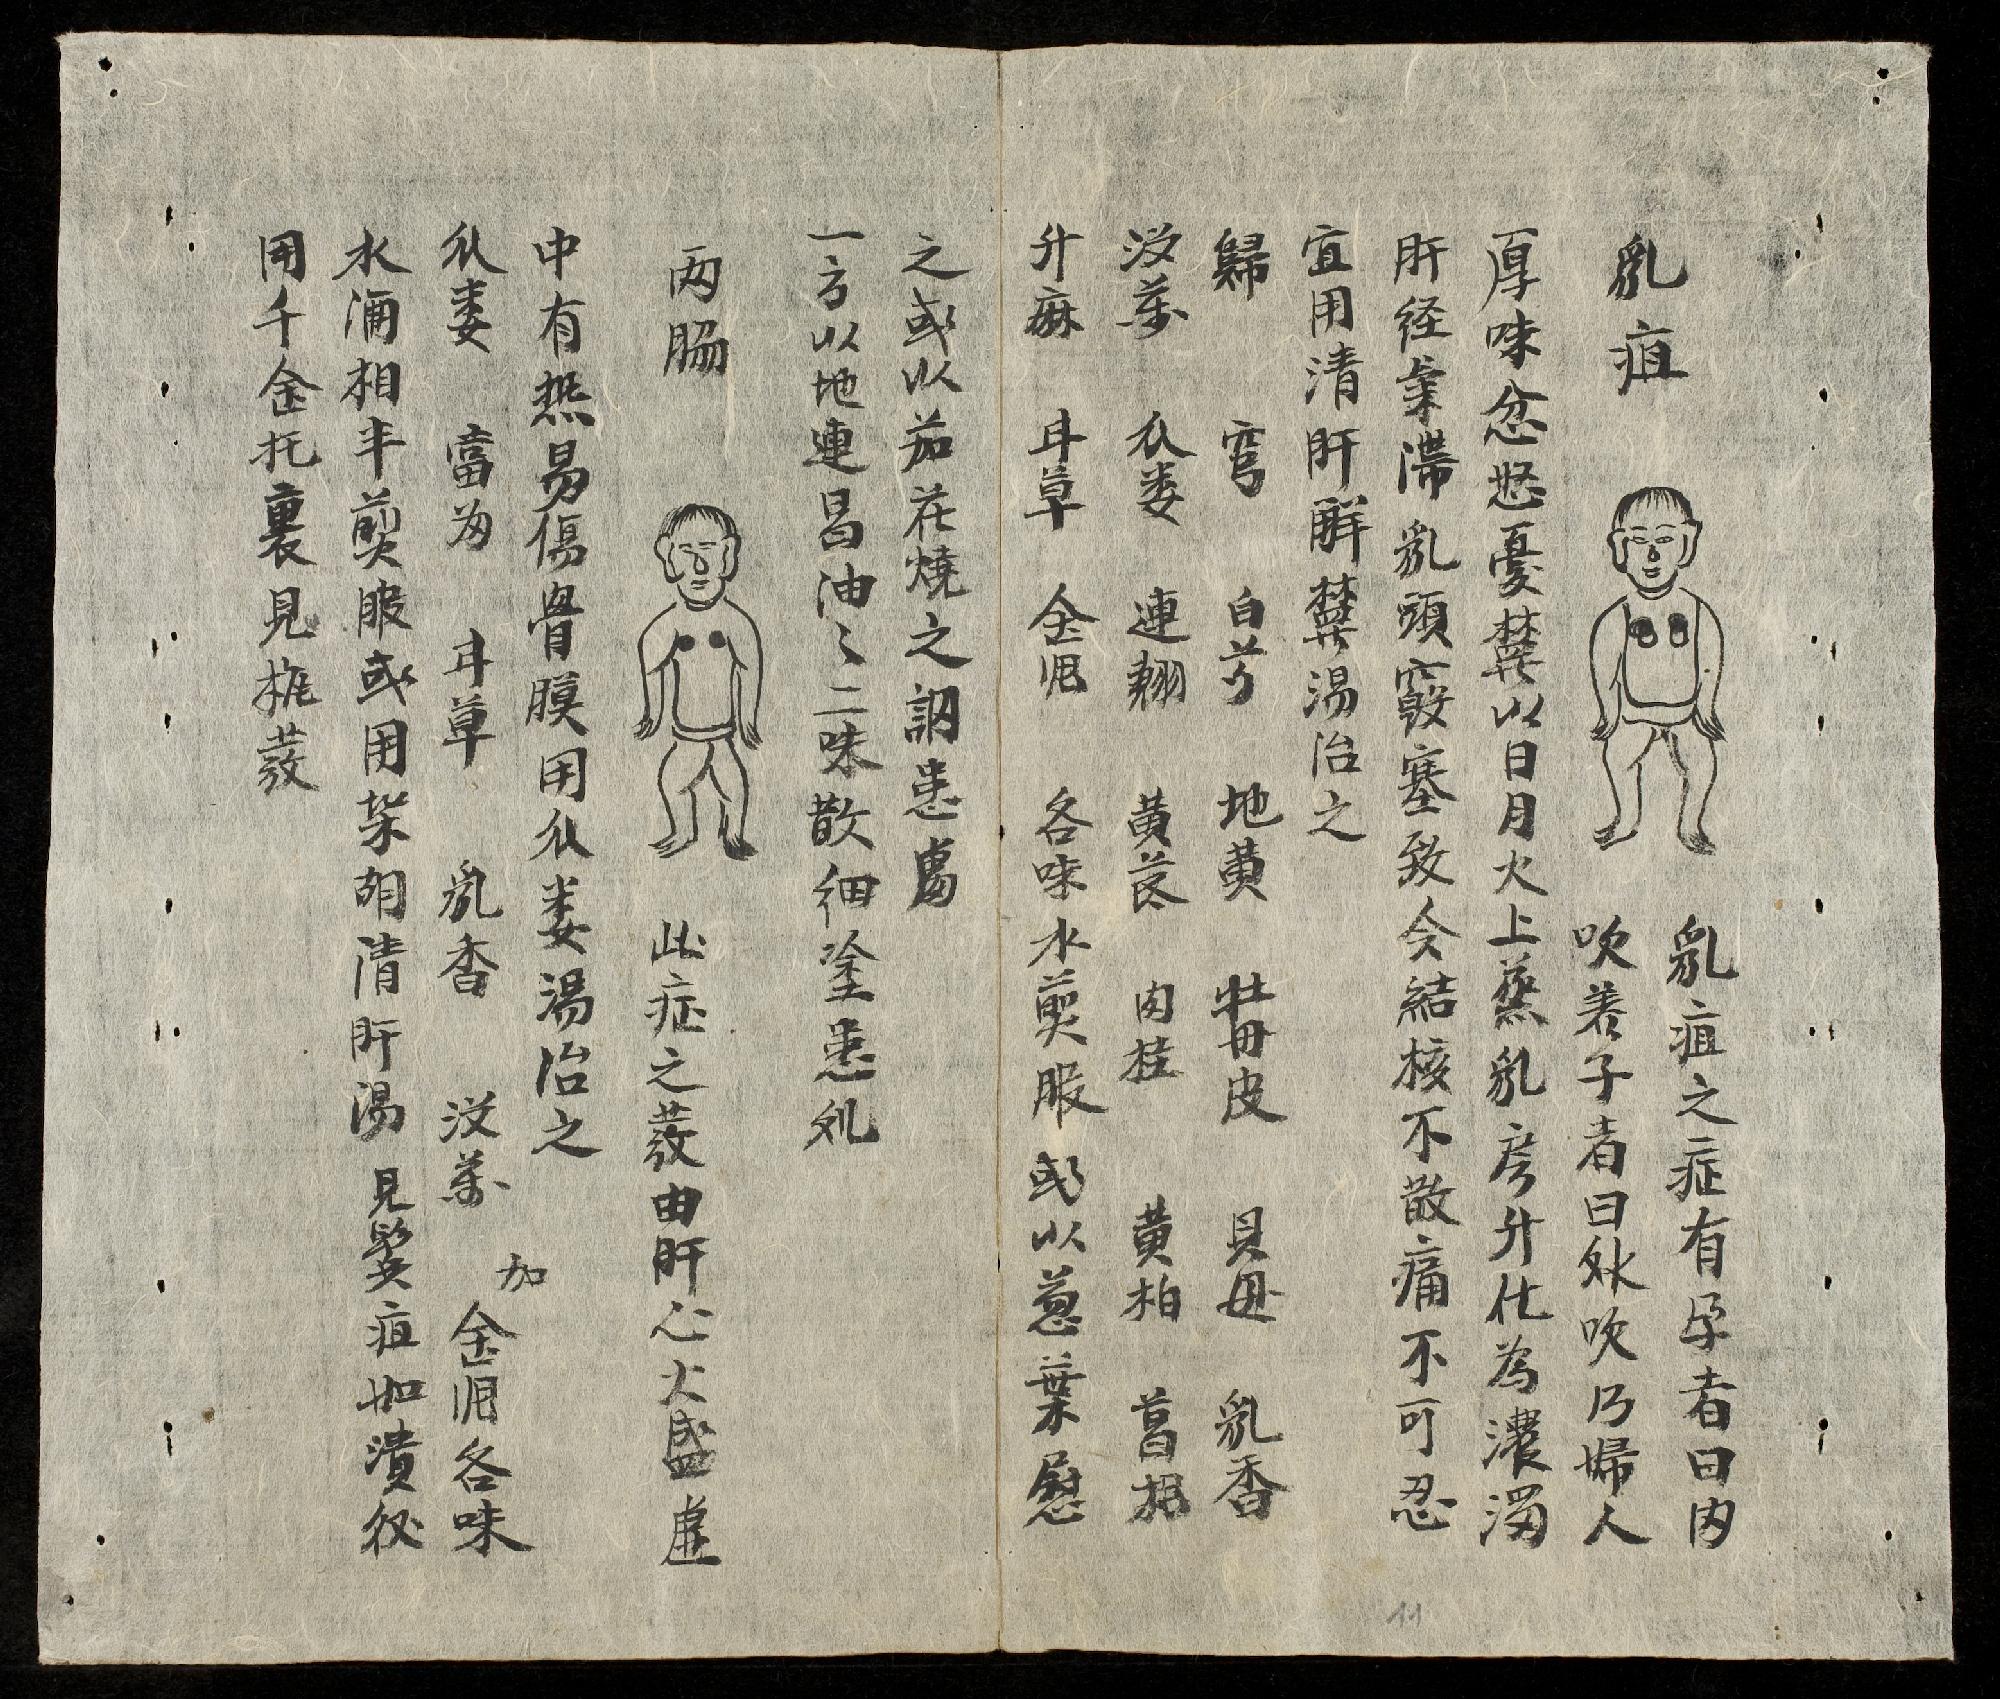 乳疽
乳疽之症有孕者曰内
吹着子者曰外吹乃婦人
厚味忿怒憂欝以日月火上蒸乳房升化為濃濁
肝経氣滞乳頭竅塞致令結核不散痛不可忍
宜用清肝觧欝湯治之
歸 穹 白芍 地黄 牡丹皮 貝母 乳香
没薬 瓜蒌 連翹 黄芪 肉桂 黄柏 菖根
升麻 甘草 金艮 各味水煎服或以葱葉慰
之或以茄花燒之訒患處
一方以地連昌油〻二味散細塗患処
两腸
此症之發由肝心火盛虚
中有热易傷骨膜用瓜蒌湯治之
瓜蒌 當为 甘草 乳香 没薬 加 金艮各味
水酒相半煎服或用柴胡清肝湯 見鬓疽 如潰後
用千金托裏見椎發
11